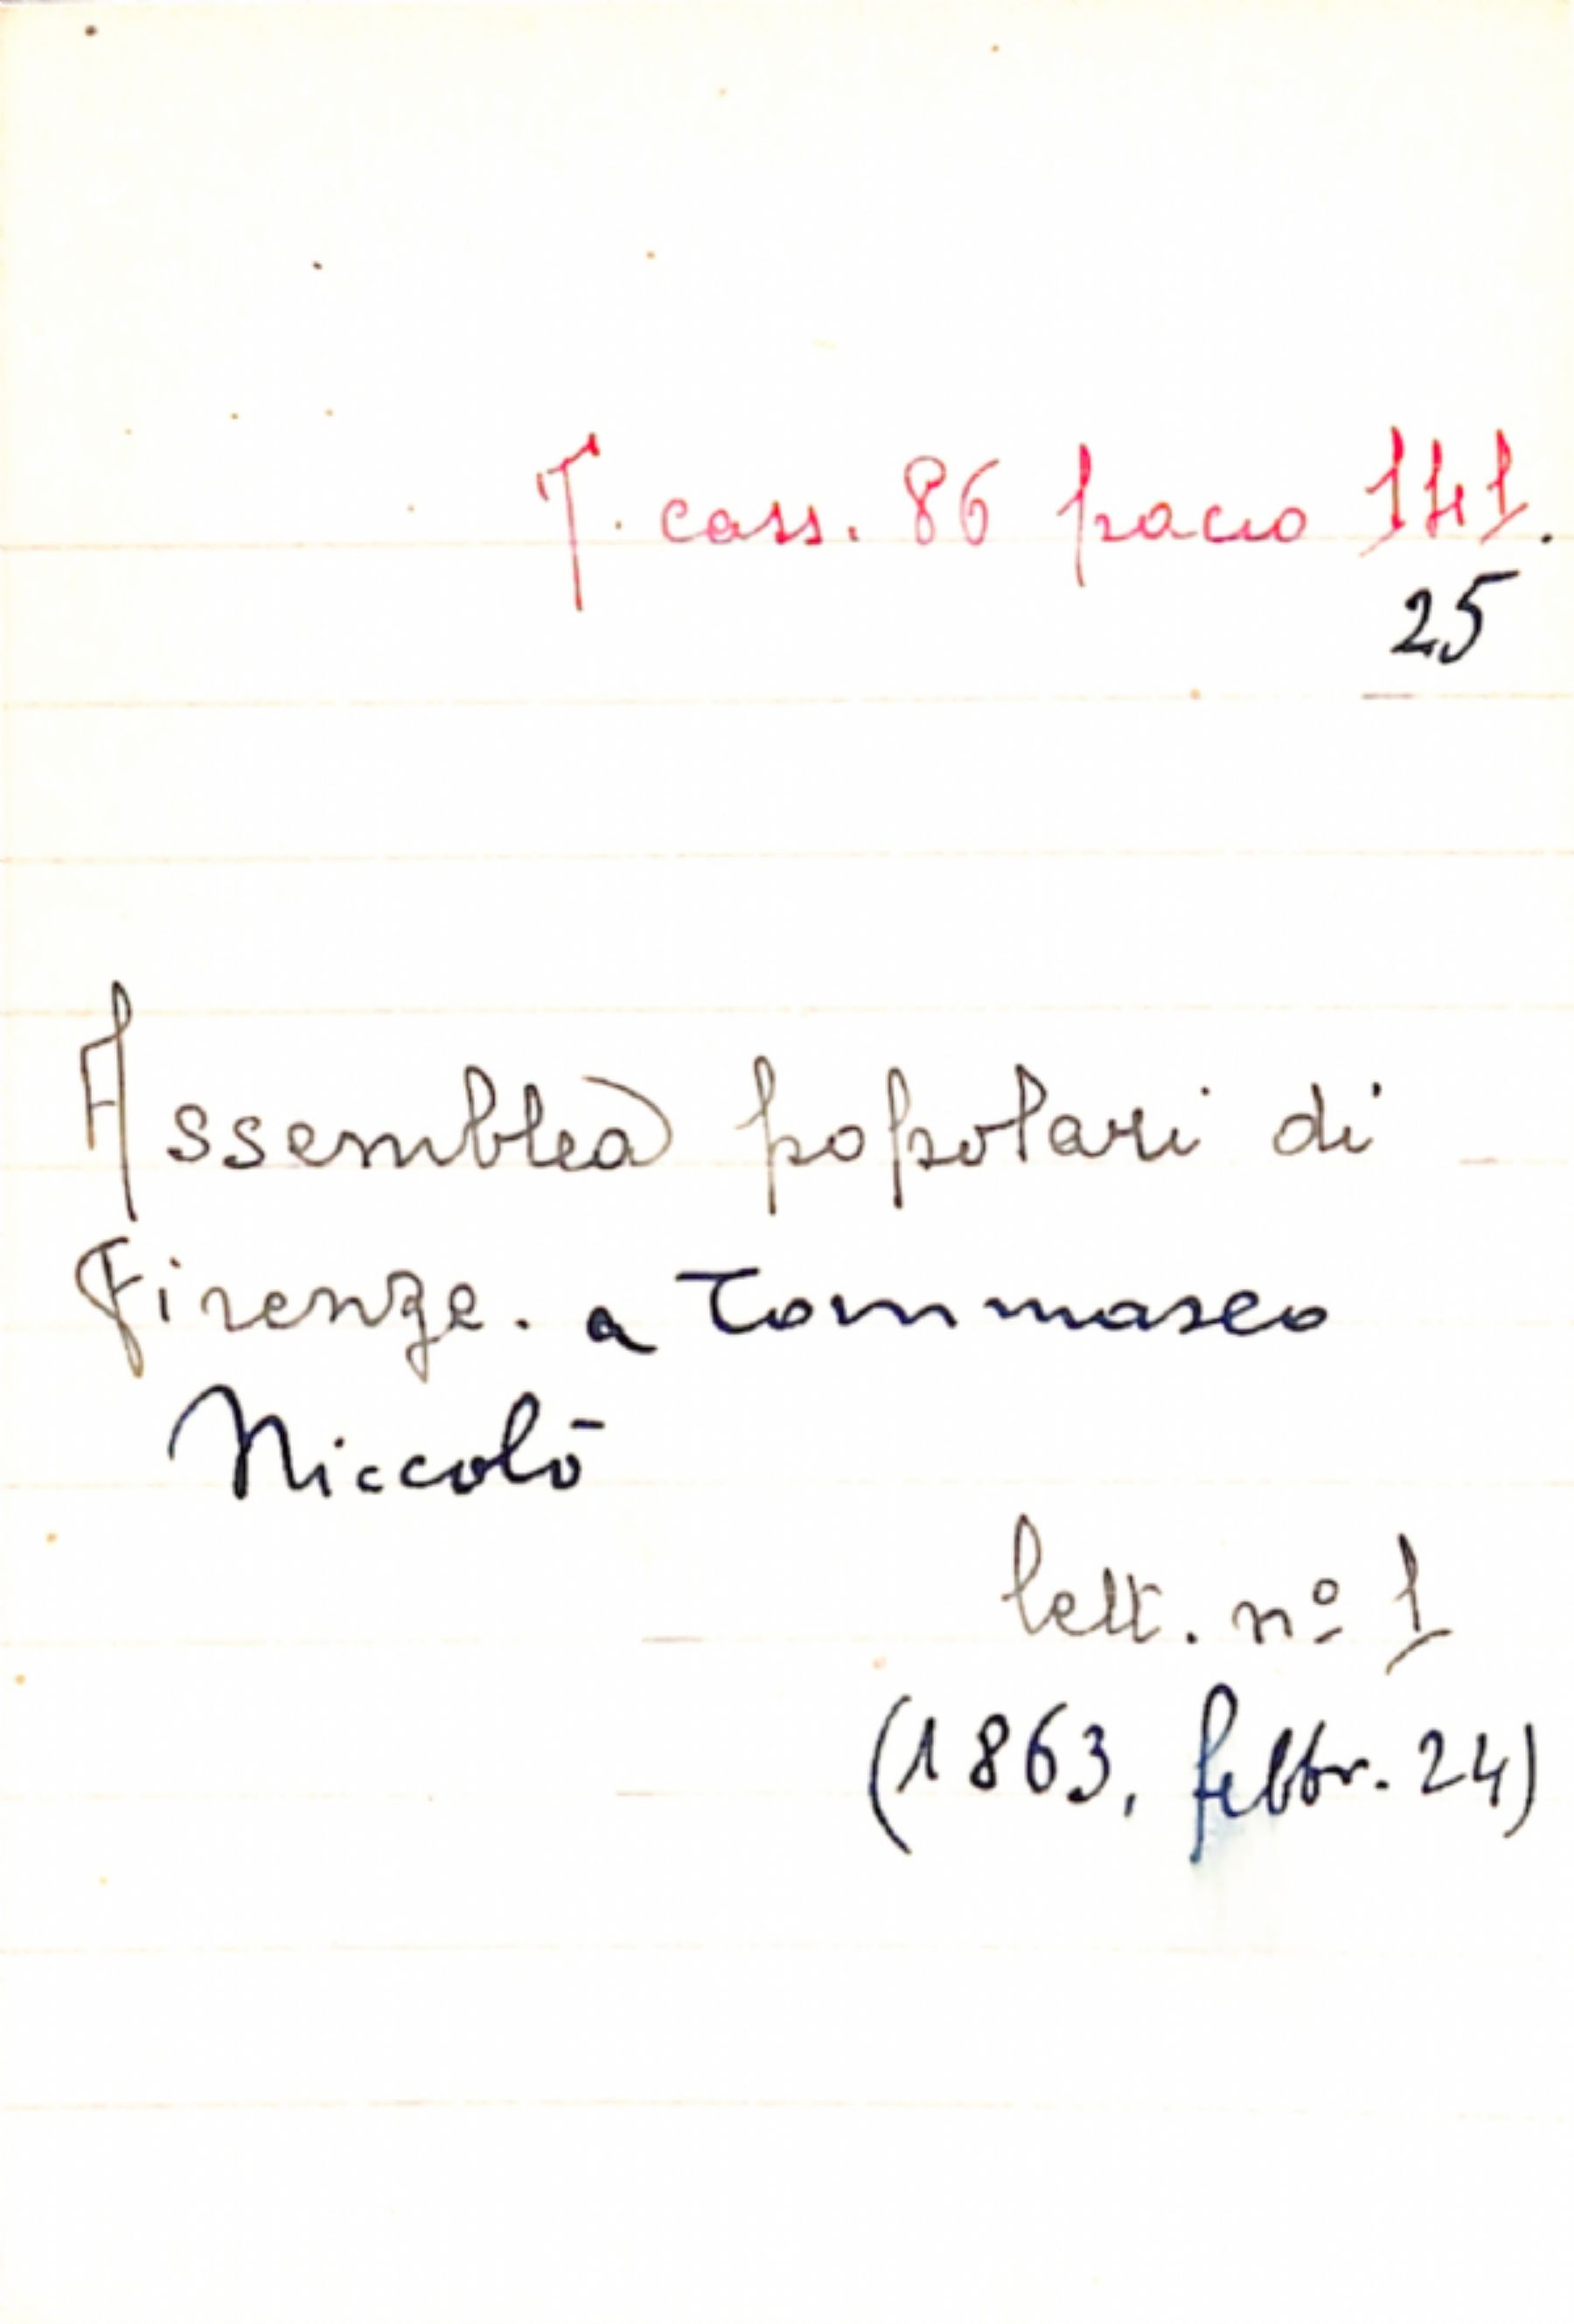 T. cass. 86 pacco 141.
25
Assemblea popolari di
Firenze. a Tommaseo
Niccolò
lett. nº 1
(1863, febbr. 24)